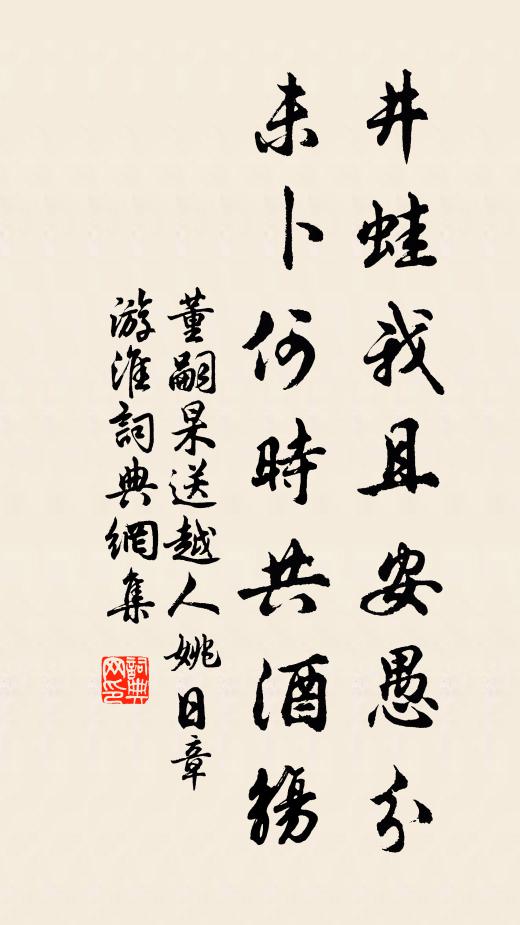 井蛙我且安愚分
未卜何時共酒觴
董嗣杲送越人姚日章
游淮詞典網集
詞典网印